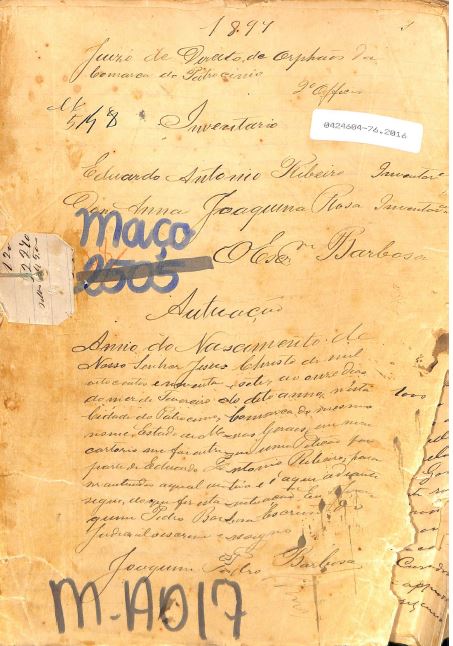 1897
Juizo de Direito, de Orphãos da
Comarca do Patrocinio
2º Officio
Inventario
0424604-76.2016
Eduardo Antonio Ribeiro Inventar
Anna Joaquina Rosa Inventar
Maço
2505
O Esc Barbosa
Autuação
Anno do Nascimento de
Nosso Senhor Jesus Christo de mil
oito centos e noventa e sete, ao onze dias
do mez de Fevereiro do dito anno, nesta
Cidade do Patrocinio, Comarca do mesmo
nome, Estado de Minas Geraes, em meu
cartorio me foi entregue uma Petição por
parte de Eduardo Antonio Ribeiro, para
ser autuada a qual é a que adiante
segue, do que fiz esta autuação. Eu
Pedro Barbosa Escrivão
Judicial
Joaquim Pedro Barbosa
M-AD17